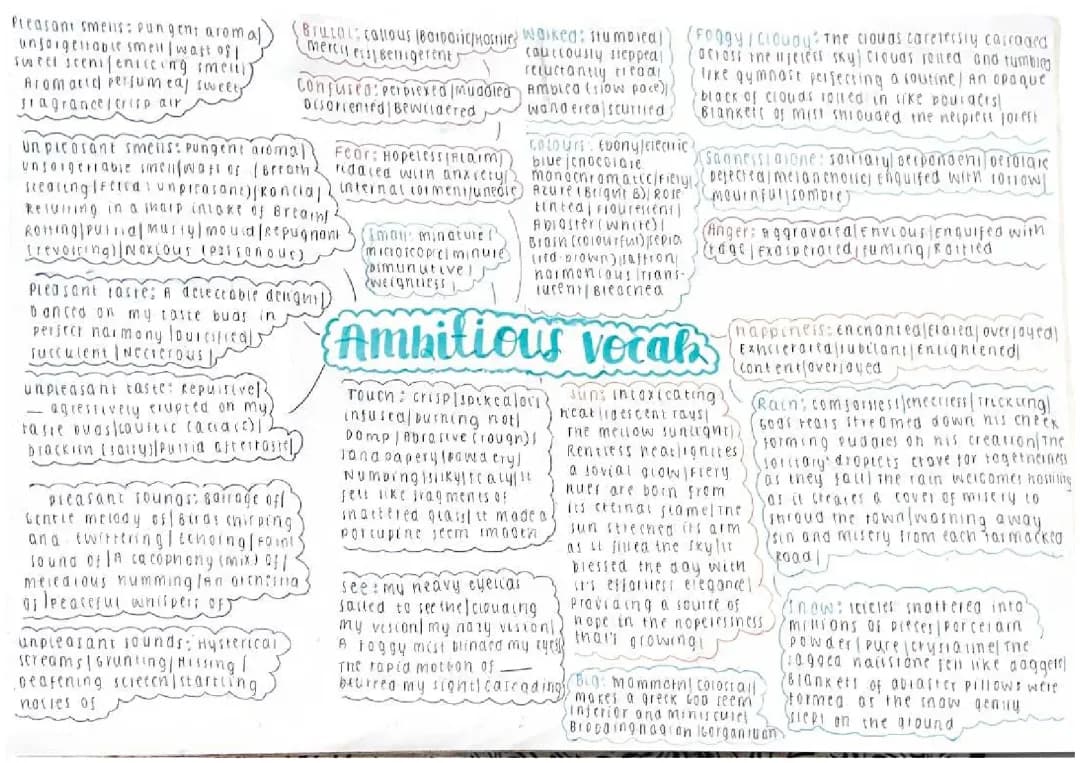 Pleasant smells: Pungent aroma/
unforgettable smell/waft of/
sweet scent/enticing smell/
Aromatic/perfumed/sweet
fragrance/crisp air
Brutal: callous/Barbaric/Hostile
merciless/Belligerent
Confused: perplexed/Muddled
Disoriented/Bewildered
Walked: stumbled/
cautiously stepped/
reluctantly tread/
Ambled (slow pace)/
wandered/scuttled
Foggy/cloudy: The clouds carelessly cascaded
across the lifeless sky/clouds rolled and tumbled
like gymnast perfecting a routine/An opaque
black of clouds rolled in like boulders/
Blankets of mist shrouded the helpless forest
unpleasant smells: Pungent aroma/
unforgettable smell/waft of /Breath
stealing/Fetid: unpleasant)/Rancid/
Resulting in a sharp intake of Breath/
Rotting/putrid/musty/mould/Repugnant
(revolting)/Noxious (poisonous)
Fear: Hopeless/Alarm/
ridaced with anxiety/
internal torment/unease
Small: minature/
microscopic/minute
Dimunutive/
weightless
colours: Ebony/electric
blue/chocolate
monochromatic/fiery/
Azure (Bright B)/Rose
tinted/Flourescent/
Abloster (white)/
Brash (colourful)/sepia
(red-brown)/saffron/
harmonious/trans-
lucent/Bleached
Sadness/alone: solitary/despondent/desolate
Dejected/melancholic/Engulfed with sorrow/
mournful/sombre
Anger: Aggravated/Envious/engulfed with
rage/Exasperated/fuming/Rattled
Pleasant taste: A delectable delight/
Danced on my taste buds in
perfect harmony/Dulcified/
succulent/Necterous/
Ambitious vocab
Happiness: enchanted/Elated/overjoyed/
Exhilerated/Jubilant/Enlightened/
content/overjoyed
unpleasant taste: Repulsive/
__ agressively erupted on my
taste buds/caustic (acidic)/
brackish (salty)/putrid aftertaste/
Touch: crisp/spiked/oil
infused/burning hot/
Damp/Abrasive (rough)/
sandpapery/powdery/
Numbing/silky/scaly/it
felt like fragments of
shattered glass/it made a
porcupine seem
Sun: intoxicating
heat/iridescent rays/
The mellow sunlight/
Rentless heat/ignites
a jovial glow/Fiery
hues are born from
its eternal flame/The
sun streched its arm
as it filled the sky/it
blessed the day with
it's effortless elegance/
Providing a source of
hope in the hopelessness
that's growing/
Rain: comfortless/cheerless/Trickling/
Gods tears streamed down his cheek
forming puddles on his creation/The
solitary droplets crave for togetherness
as they fall/The rain welcomes hostility
as it creates a cover of misery to
shroud the town/washing away
sin and misery from each tarmacked
Road/
pleasant sounds: Barrage of/
Gentle melody of/Birds chirping
and twittering/Echoing/Faint
sound of/A cacophony (mix) of/
melodious humming/An orchestra
of/peaceful whispers of
See: my heavy eyelids
failed to see the/clouding
my vision/my hazy vision/
A foggy mist blinded my eyes/
The rapid motion of __
blurred my sight/cascading
Snow: Icicles shattered into
millions of pieces/porcelain
powder/pure/crystaline/The
jagged hailstone fell like daggers/
Blankets of abloster pillows were
formed as the snow gently
slept on the ground
unpleasant sounds: Hysterical
screams/Grunting/Hissing/
Deafening screech/startling
noises of
Big: Mammoth/colossal/
makes a greek God seem
inferior and miniscule/
Brobdingnagian/Gargantuan